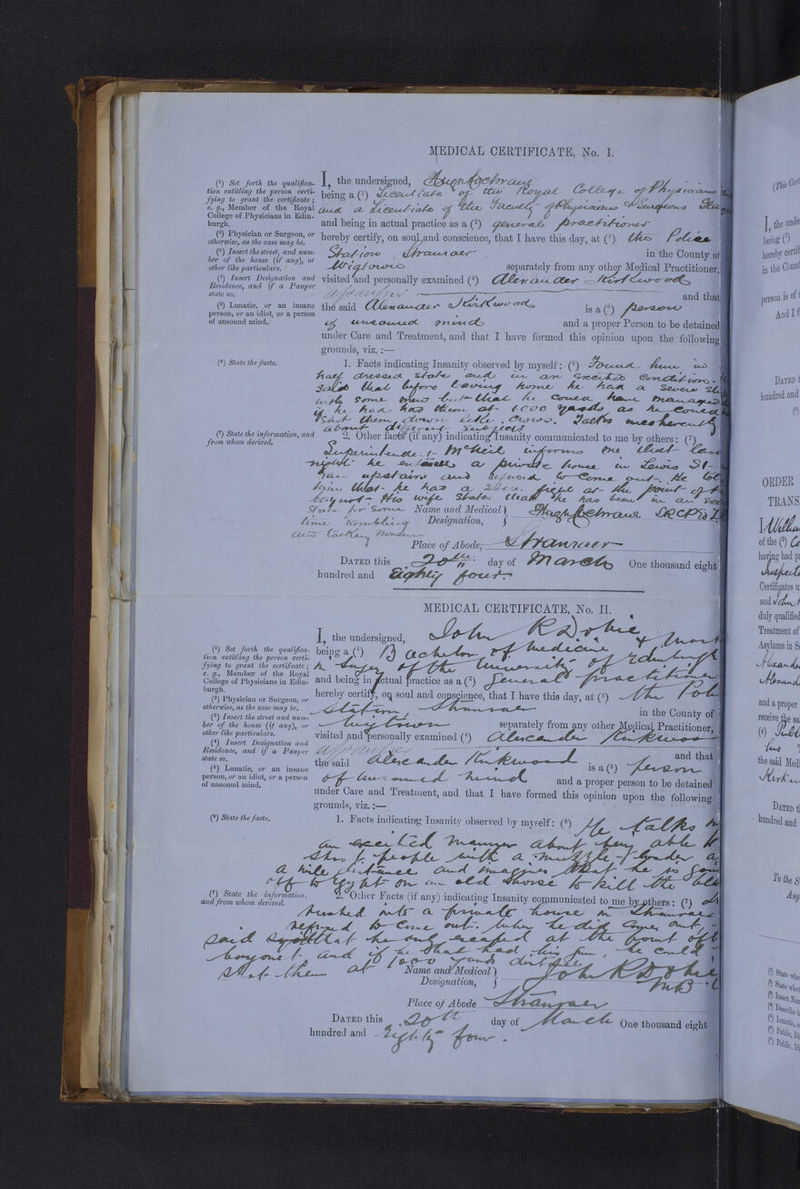 MEDICAL CERTIFICATE, No. I.
(¹) Set forth the qualifica-
tion entitling the person certi-
fying to grant the certificate;
e. g., Member of the Royal
College of Physicians in Edin-
burgh.
(²) Physician or Surgeon, or
otherwise, as the case may be.
(³) Insert the street, and num-
ber of the house (if any), or
other like particulars.
(⁴) Insert Designation and
Residence, and if a Pauper
state so.
(⁵) Lunatic, or an insane
person, or an idiot, or a person
of unsound mind.
(⁶) State the facts.
(⁷) State the information, and
from whom derived.
I, the undersigned, Hugh Cochrane
being a (¹) Licentiate of the Royal College of Physicians
and a Licentiate of the Faculty of Physicians & Surgeons
and being in actual practice as a (²) general practitioner
hereby certify, on soul and conscience, that I have this day, at (³) the Police
Station Stranraer in the County of
Wigtown separately from any other Medical Practitioner,
visited and personally examined (⁴) Alexander Kirkwood
a pauper and that
the said Alexander Kirkwood is a (⁵) person
of unsound mind and a proper Person to be detained
under Care and Treatment, and that I have formed this opinion upon the following
grounds, viz. :—
1. Facts indicating Insanity observed by myself: (⁶) Found him in
half dressed state and in an excited condition.
that before leaving home he had a severe
with some men but that he could have managed
if he had had them at 1000 yards as he could
shot them down like crows. Talks incoherently
about different subjects
2. Other facts (if any) indicating Insanity communicated to me by others: (⁷)
Superintendent McNeil informs me that last
night he entered a private house in Lewis St
upstairs and refused to come out. He told
him that he had a fight at the point of
bayonet. His wife states that he has been in an
state for some
time rambling
and talking
Name and Medical Designation, Hugh Cochrane LRCP
Place of Abode, Stranraer
DATED this 20th day of March One thousand eight
hundred and Eighty four
MEDICAL CERTIFICATE, No. II.
(¹) Set forth the qualifica-
tion entitling the person certi-
fying to grant the certificate;
e. g., Member of the Royal
College of Physicians in Edin-
burgh.
(²) Physician or Surgeon, or
otherwise, as the case may be.
(³) Insert the street and num-
ber of the house (if any), or
other like particulars.
(⁴) Insert Designation and
Residence, and if a Pauper
state so.
(⁵) Lunatic, or an insane
person, or an idiot, or a person
of unsound mind.
(⁶) State the facts.
(⁷) State the information,
and from whom derived.
I, the undersigned, John R Dobie
being a (¹) Bachelor of Medicine &
of the University of Edinburgh
and being in actual practice as a (²) General Practitioner
hereby certify, on soul and conscience, that I have this day, at (³) the
Station, Stranraer in the County of
Wigtown separately from any other Medical Practitioner,
visited and personally examined (⁴) Alexander Kirkwood
a pauper and that
the said Alexander Kirkwood is a (⁵) person
of unsound mind and a proper person to be detained
under Care and Treatment, and that I have formed this opinion upon the following
grounds, viz. :—
1. Facts indicating Insanity observed by myself: (⁶) He talks in
an excited manner about being able to
shoot people with a muzzle loader
a mile distance and imagines that he is
off to Egypt on an old horse to kill the
2. Other Facts (if any) indicating Insanity communicated to me by others: (⁷)
rushed into a private house in Stranraer
refused to come out. When he did come out
said that he only escaped at the point of
bayonet, and if he had his gun, he could
shot them at 1000 yards distance
Name and Medical Designation, John R Dobie
MB
Place of Abode Stranraer
DATED this 20th day of March One thousand eight
hundred and Eighty four.
I, the unde
being (¹)
hereby certif
in the Count
person is of
And I f
DATED t
hundred and
ORDER
TRANS
of the (²)
having had p
Certificates u
and John
duly qualified
Treatment of
Asylums in S
and a proper
receive the sa
the said Med
DATED t
hundred and
To the S
Asy